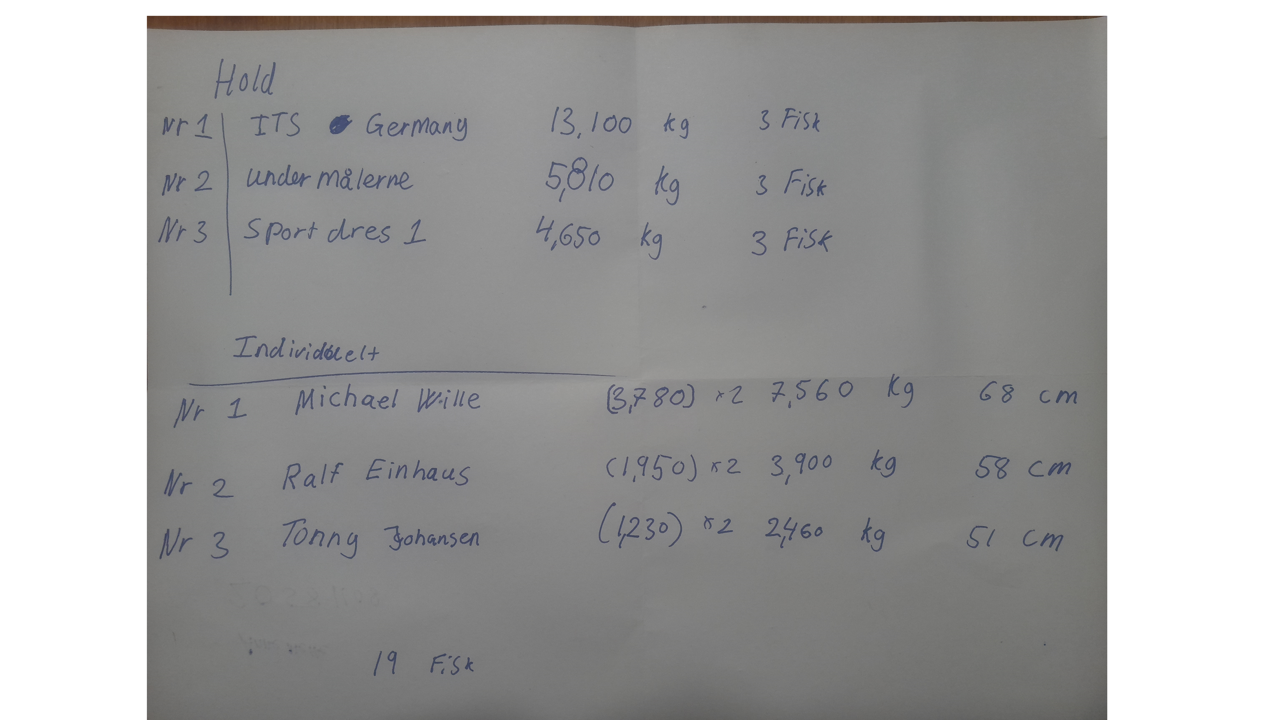 Hold
Nr 1 ITS Germany 13,100 kg 3 Fisk
Nr 2 undermålerne 5,810 kg 3 Fisk
Nr 3 Sport dres 1 4,650 kg 3 Fisk
Individuelt
Nr 1 Michael Wille (3,780) x2 7,560 kg 68 cm
Nr 2 Ralf Einhaus (1,950) x2 3,900 kg 58 cm
Nr 3 Tonny Johansen (1,230) x2 2,460 kg 51 cm
19 Fisk